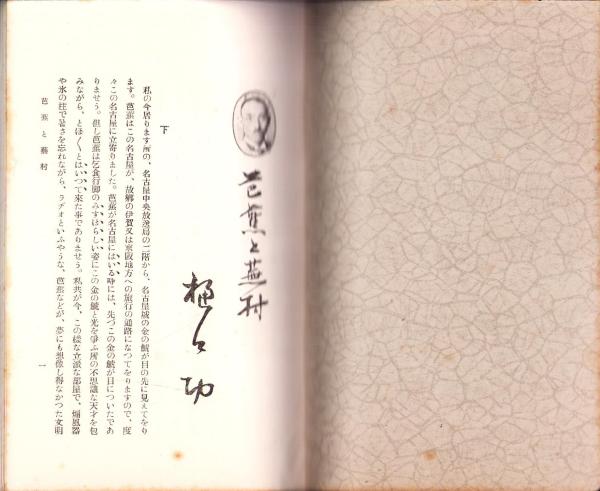 芭蕉と蕪村
樋口功
下
私の今居ります所の、名古屋中央放送局の二階から、名古屋城の金の鯱が目の先に見えてをり
ます。芭蕉はこの名古屋が、故郷の伊賀又は京阪地方への旅行の通路になつてをりますので、度
々この名古屋に立寄りました。芭蕉が名古屋にはいる時には、先づこの金の鯱が目についたであ
りませう。但し芭蕉は乞食行脚のみすぼらしい姿にこの金の鯱と光を爭ふ所の不思議な天才を包
みながら、とぼ〱とはいつて來た事でありませう。私共が今、この樣な立派な部屋で、煽風器
や氷の柱で暑さを忘れながら、ラヂオといふやうな、芭蕉などが、夢にも想像し得なかつた文明
芭蕉と蕪村
一